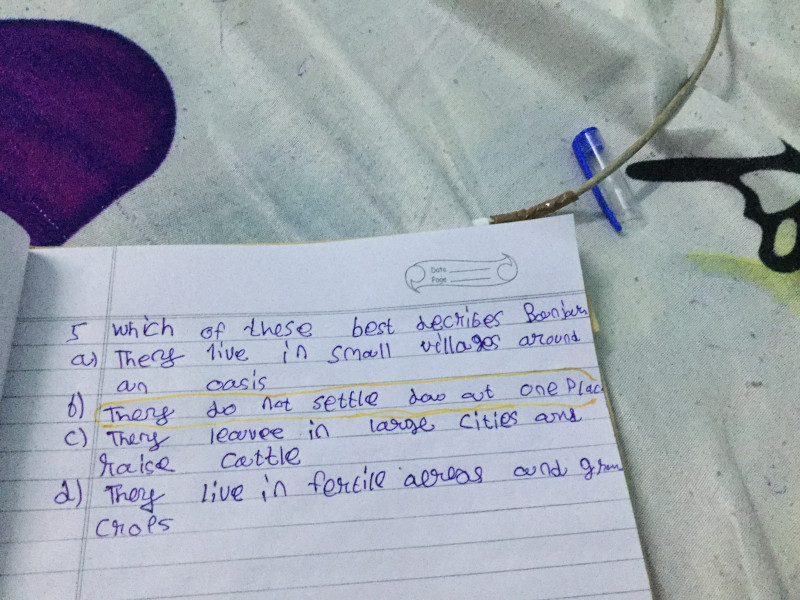 Date
Page
5 which of these best decribes Banjar
a) They live in small villages around
an oasis
b) They do not settle dow at one Plac
c) They leavee in large cities and
raise cattle
d) They live in fertile aereas and grow
crops